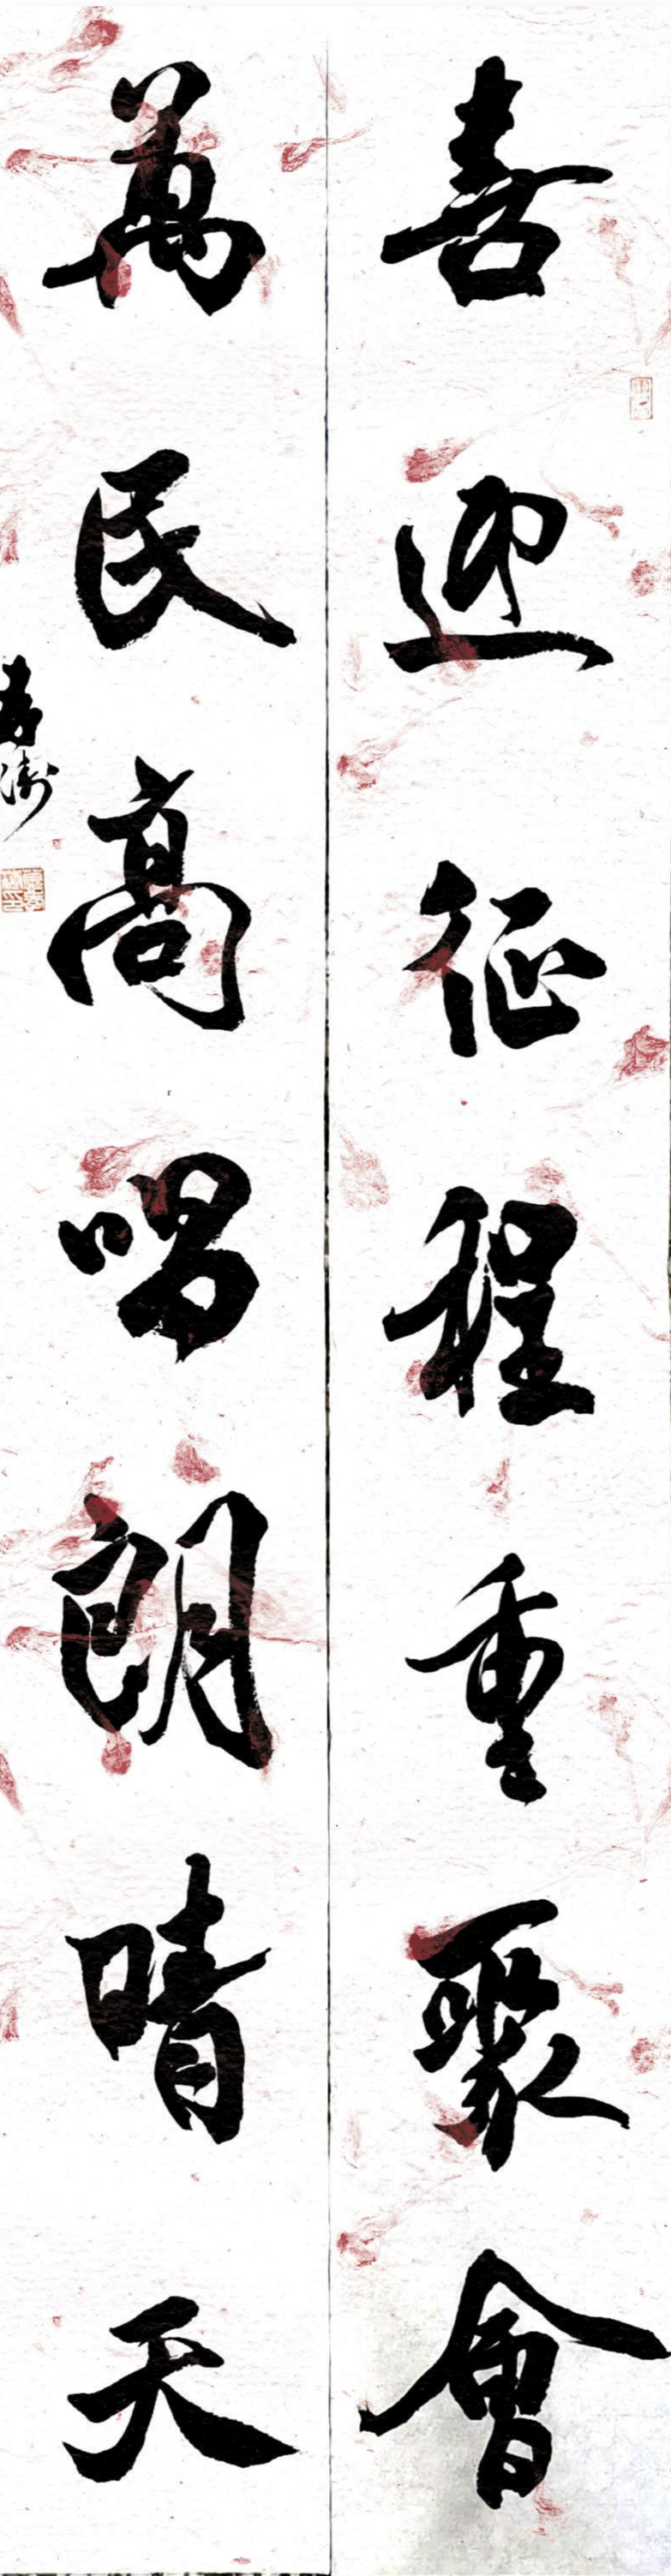 喜迎征程重聚會
萬民高唱朗晴天